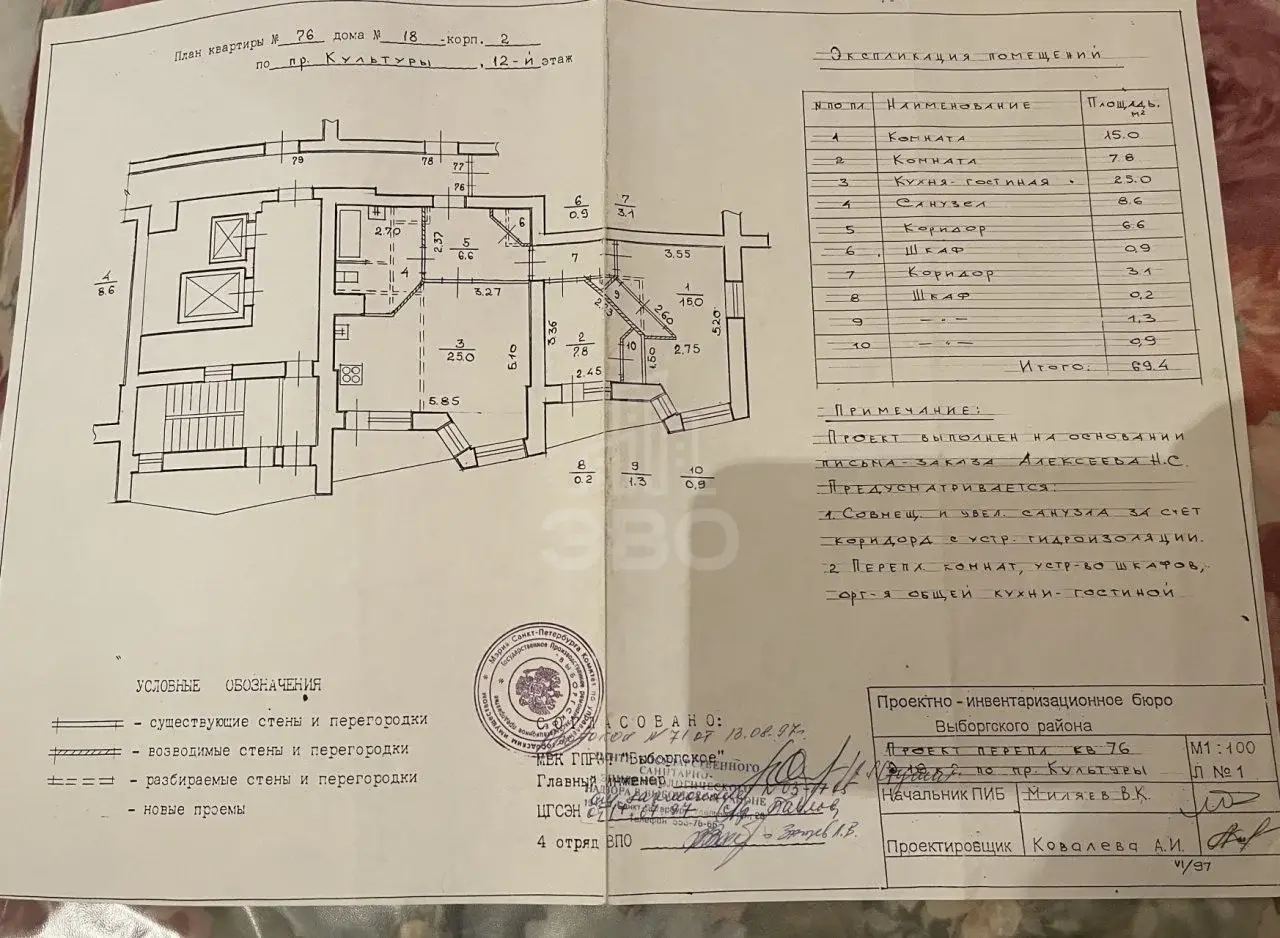 План квартиры № 76 дома № 18 -корп. 2
по пр. Культуры, 12-й этаж
79
78
77
76
6
0.9
7
3.1
2.70
2.37
5
6.6
6
4
8.6
4
7
3.55
3.27
1
15.0
9
2.60
5.20
3.36
2
7.8
3
25.0
5.10
10
1.50
2.75
2.45
5.85
8
0.2
9
1.3
10
0,9
ЭВО
Экспликация помещений
№ по пл. Наименование Площадь, м²
1 Комната 15.0
2 Комната 7.8
3 Кухня-гостиная 25.0
4 Санузел 8.6
5 Коридор 6.6
6 Шкаф 0,9
7 Коридор 3.1
8 Шкаф 0,2
9 -"- 1,3
10 -"- 0,9
Итого: 69.4
Примечание:
Проект выполнен на основании
письма-заказа Алексеева Н.С.
Предусматривается:
1. Совмещ. и увел. санузла за счет
коридора с устр. гидроизоляции.
2 Перепл. комнат, устр-во шкафов,
орг-я общей кухни-гостиной
УСЛОВНЫЕ ОБОЗНАЧЕНИЯ
- существующие стены и перегородки
- возводимые стены и перегородки
- разбираемые стены и перегородки
- новые проемы
Мэрия Санкт-Петербурга Комитет по управлению городским имуществом
СОГЛАСОВАНО:
Протокол № 71 от 13.08.97г.
МВК ГПРЭП "Выборгское"
Главный инженер
ЦГСЭН
4 отряд ВПО
Проектно-инвентаризационное бюро
Выборгского района
Проект перепл. кв 76
по пр. Культуры
М1:100
Л №1
Начальник ПИБ Миляев В.К.
Проектировщик Ковалева А.И.
VI/97